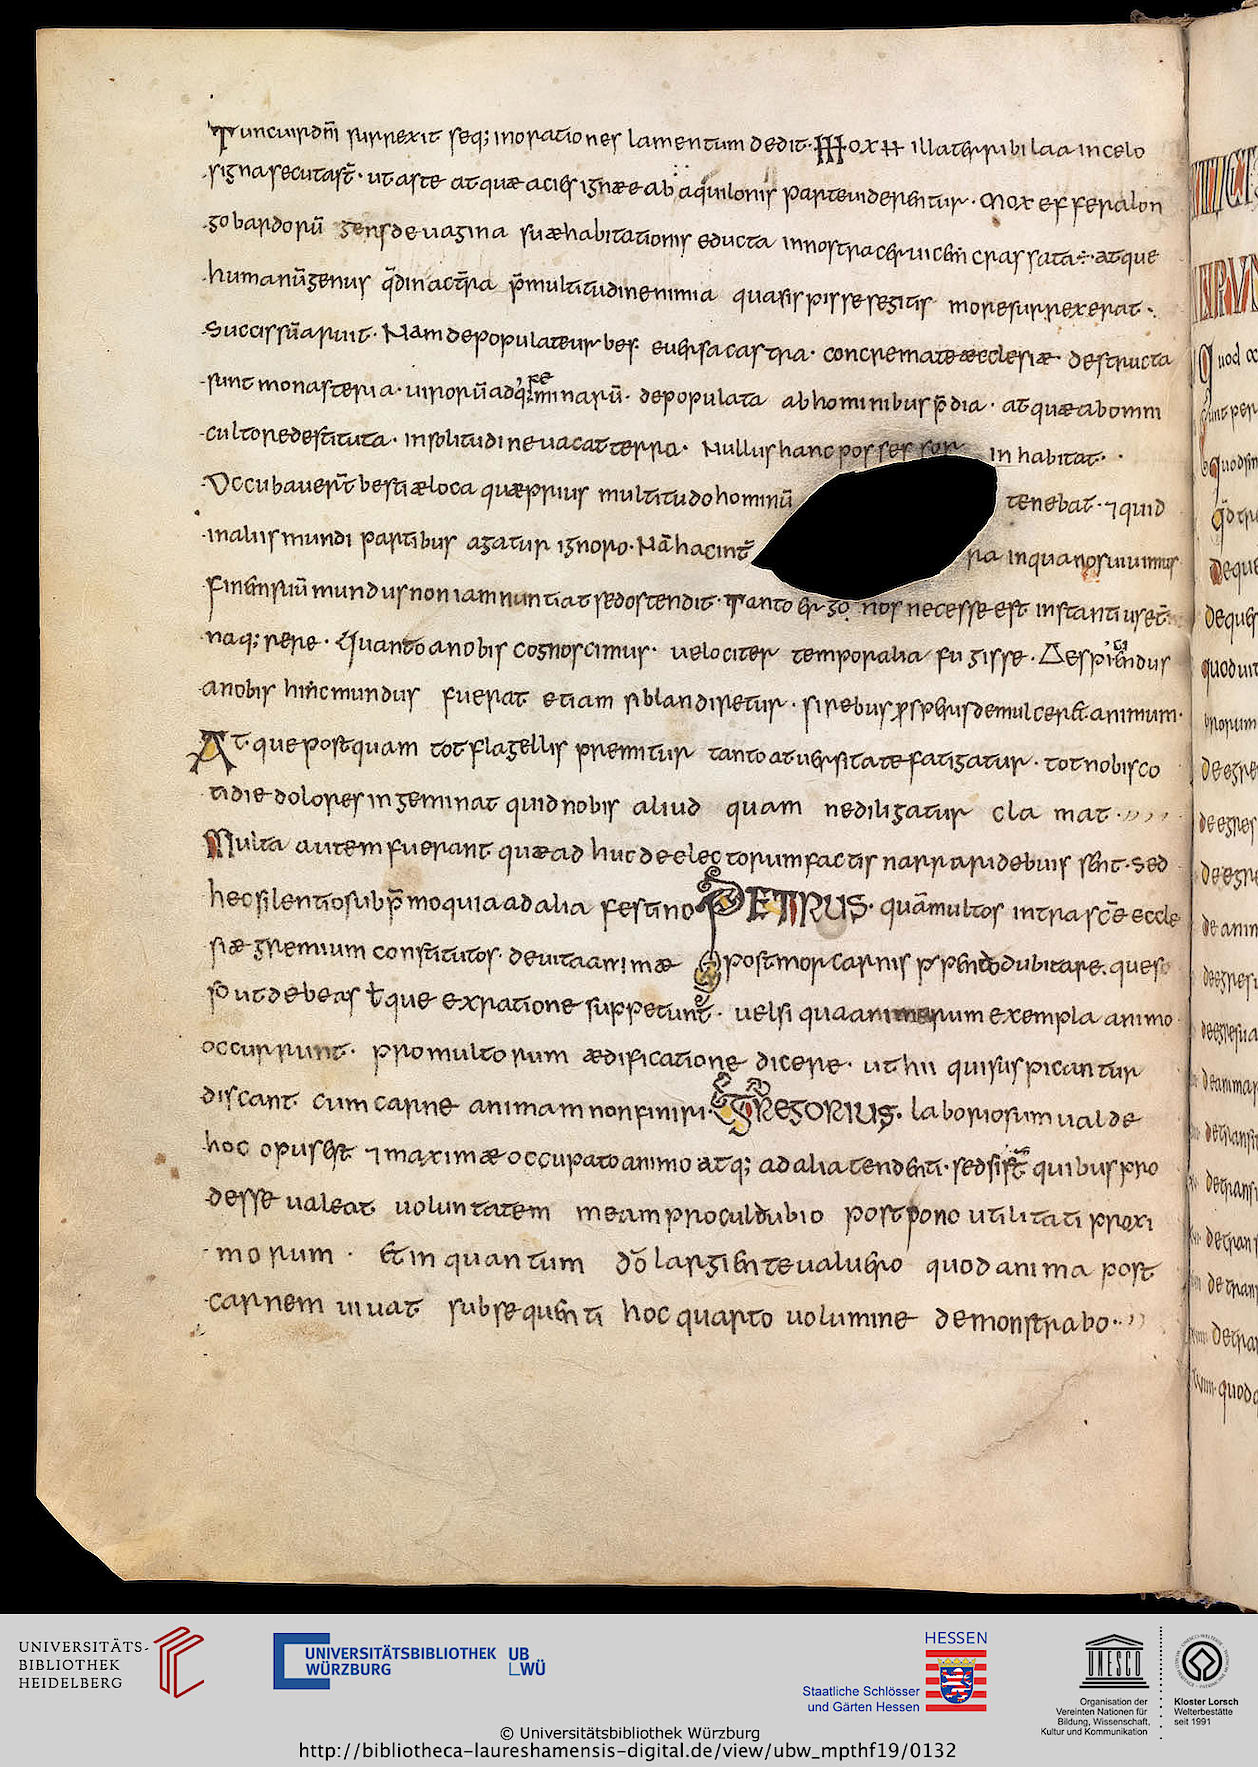 Tunc uir dñi surrexit seq; in orationes lamentum dedit · Mox illa terribilia a in celo
signa secuta st̄ · ut aste atquæ acies igneæ ab aquilonis parte uiderentur · Mox effera lon
gobardorū gens de uagina suæ habitationis educta in nostra ceruicem crassata · atque
humanū genus q̄d in ac t̄ra p̄ multitudine nimia quasi spisse segitis more surrexerat ·
succissū aruit · Nam depopulate urbes euersa castra · concremate æcclesiæ destructa
sunt monasteria · uirorū adq; feminarū · depopulata ab hominibus p̄dia · atquæ ab omni
cultore destituta · in solitudine uacat terra · Nullus hanc possessor in habitat ·
Occubauer̄t bestiæ loca quæ prius multitudo hominū tenebat · ⁊ quid
in aliis mundi partibus agatur ignoro · Nā hac in t̄ ra in qua nos uiuimus
finem suū mundus non iam nuntiat sed ostendit · Tanto ergo nos necesse est instantius et̄
naq; rere · Quanto a nobis cognoscimus · uelociter temporalia fugisse · Despiciendus
a nobis hinc mundus fuerat etiam si blandiretur · si rebus ꝓsperis demulceret animum ·
At · que postquam tot flagellis premitur tanto atuersitate fatigatur · tot nobis co
tidie dolores ingeminat quid nobis aliud quam ne diligatur cla mat ·
Multa autem fuerant quæ ad huc de electorum factis narrari debuissent · Sed
hec silentio subp̄mo quia ad alia festino PETRUS · quā multos intra scē eccle
siæ gremium constitutos · de uita animæ post mor carnis p̄pendo dubitare · queso
ut debeas t̄ que ex ratione suppetunt · uel si qua animarum exempla animo
occurrunt · pro multorum ædificatione dicere · ut hii qui suspicantur
discant cum carne animam non finiri · GREGORIUS · laboriosum ualde
hoc opus est ⁊ maximæ occupato animo atq; ad alia tendenti · sed si st̄ quibus pro
desse ualeat uoluntatem meam proculdubio postpono utilitati proxi
morum · Et in quantum dō largiente ualuero quod anima post
carnem uiuat subsequenti hoc quarto uolumine demonstrabo ·
UNIVERSITÄTS-
BIBLIOTHEK
HEIDELBERG
UNIVERSITÄTSBIBLIOTHEK
WÜRZBURG
UB
WÜ
HESSEN
Staatliche Schlösser
und Gärten Hessen
UNESCO
Organisation der
Vereinten Nationen für
Bildung, Wissenschaft,
Kultur und Kommunikation
Kloster Lorsch
Welterbestätte
seit 1991
© Universitätsbibliothek Würzburg
http://bibliotheca-laureshamensis-digital.de/view/ubw_mpthf19/0132